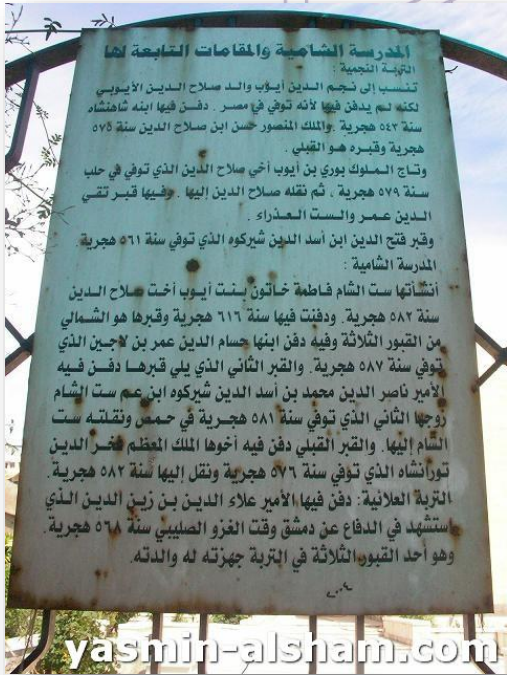 المدرسة الشامية والمقامات التابعة لها
التربة النجمية :
تنتسب إلى نجم الدين أيوب والد صلاح الدين الأيوبي
لكنه لم يدفن فيها لأنه توفي في مصر . دفن فيها ابنه شاهنشاه
سنة ٥٤٣ هجرية . والملك المنصور حسن ابن صلاح الدين سنة ٥٧٥
هجرية وقبره هو القبلي .
وتاج الملوك بوري بن أيوب أخي صلاح الدين الذي توفي في حلب
سنة ٥٧٩ هجرية ، ثم نقله صلاح الدين إليها . وفيها قبر تقي
الدين عمر والست العذراء .
وقبر فتح الدين ابن أسد الدين شيركوه الذي توفي سنة ٥٦١ هجرية
المدرسة الشامية :
أنشأتها ست الشام فاطمة خاتون بنت أيوب أخت صلاح الدين
سنة ٥٨٢ هجرية. ودفنت فيها سنة ٦١٦ هجرية وقبرها هو الشمالي
من القبور الثلاثة وفيه دفن ابنها حسام الدين عمر بن لاجين الذي
توفي سنة ٥٨٧ هجرية. والقبر الثاني الذي يلي قبرها دفن فيه
الأمير ناصر الدين محمد بن أسد الدين شيركوه ابن عم ست الشام
زوجها الثاني الذي توفي سنة ٥٨١ هجرية في حمص ونقلته ست
الشام إليها. والقبر القبلي دفن فيه أخوها الملك المعظم فخر الدين
تورانشاه الذي توفي سنة ٥٧٦ هجرية ونقل إليها سنة ٥٨٢ هجرية.
التربة العلائية: دفن فيها الأمير علاء الدين بن زين الدين الذي
استشهد في الدفاع عن دمشق وقت الغزو الصليبي سنة ٥٦٨ هجرية.
وهو أحد القبور الثلاثة في التربة جهزته له والدته.
٢٠٠٤
yasmin-alsham.com